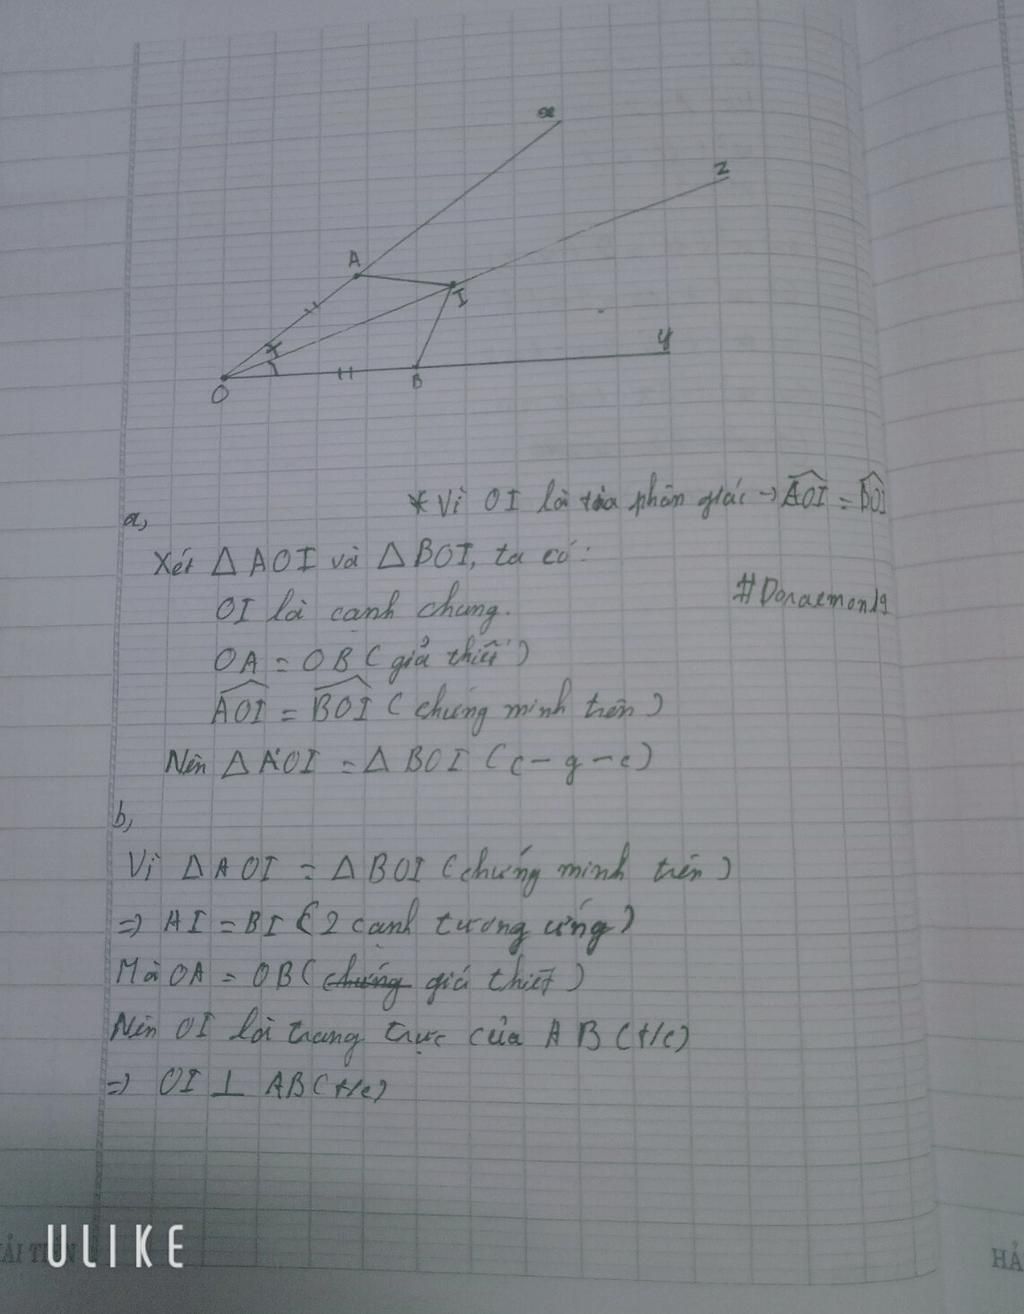 x
z
A
I
y
O
B
* Vì OI là tia phân giác → AOI = BOI
a,
Xét Δ AOI và Δ BOI, ta có:
#Doraemon19
OI là cạnh chung.
OA = OB ( giả thiết )
AOI = BOI ( chứng minh trên )
Nên Δ AOI = Δ BOI ( c - g - c )
b,
Vì Δ AOI = Δ BOI ( chứng minh trên )
=> AI = BI ( 2 cạnh tương ứng )
Mà OA = OB ( chứng giả thiết )
Nên OI là trung trực của AB ( t/c )
=> OI ⊥ AB ( t/c )
ULIKE
HẢ